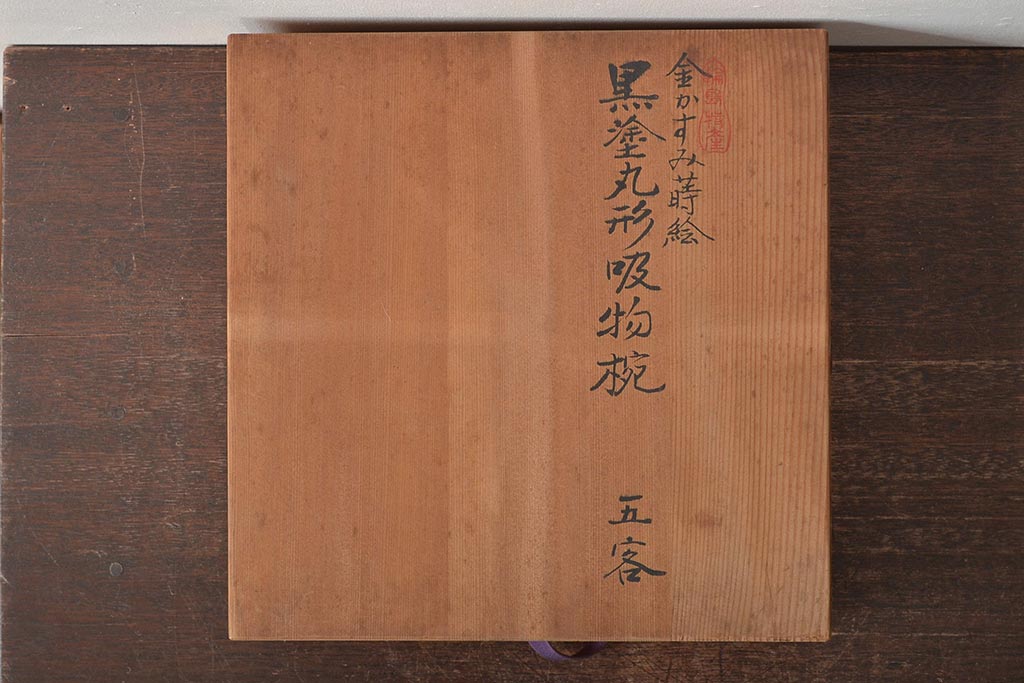 金かすみ蒔絵
黒塗丸形吸物椀 五客